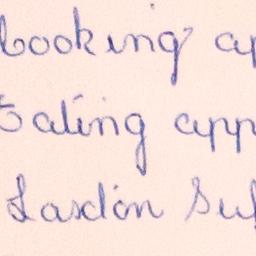 Cooking ap
Eating app
Laxton Sup